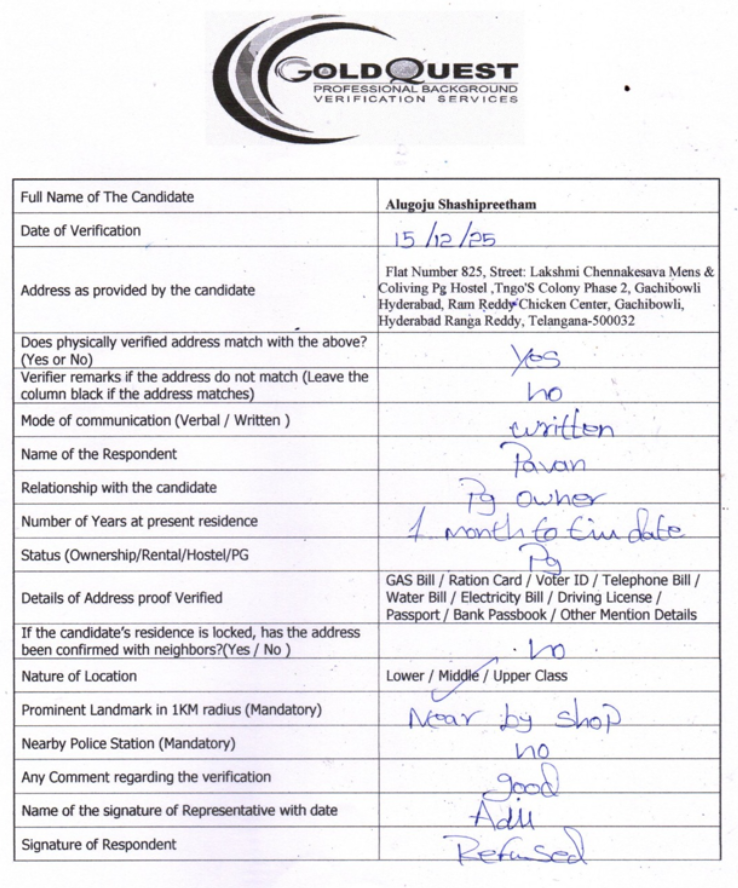 GOLDQUEST
PROFESSIONAL BACKGROUND
VERIFICATION SERVICES
Full Name of The Candidate
Alugoju Shashipreetham
Date of Verification
15/12/25
Address as provided by the candidate
Flat Number 825, Street: Lakshmi Chennakesava Mens &
Coliving Pg Hostel ,Tngo'S Colony Phase 2, Gachibowli
Hyderabad, Ram Reddy Chicken Center, Gachibowli,
Hyderabad Ranga Reddy, Telangana-500032
Does physically verified address match with the above?
(Yes or No)
Yes
Verifier remarks if the address do not match (Leave the
column black if the address matches)
no
Mode of communication (Verbal / Written )
written
Name of the Respondent
Pavan
Relationship with the candidate
Pg owner
Number of Years at present residence
1 month to date
Status (Ownership/Rental/Hostel/PG
Pg
Details of Address proof Verified
GAS Bill / Ration Card / Voter ID / Telephone Bill /
Water Bill / Electricity Bill / Driving License /
Passport / Bank Passbook / Other Mention Details
If the candidate's residence is locked, has the address
been confirmed with neighbors?(Yes / No )
no
Nature of Location
Lower / Middle / Upper Class
Prominent Landmark in 1KM radius (Mandatory)
Near by shop
Nearby Police Station (Mandatory)
no
Any Comment regarding the verification
good
Name of the signature of Representative with date
Signature of Respondent
Refused